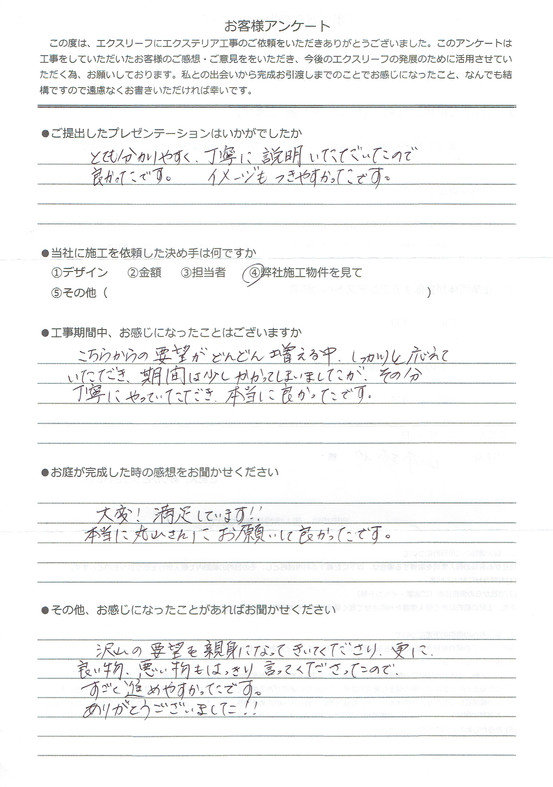 お客様アンケート
この度は、エクスリーフにエクステリア工事のご依頼をいただきありがとうございました。このアンケートは
工事をしていただいたお客様のご感想・ご意見ををいただき、今後のエクスリーフの発展のために活用させてい
ただく為、お願いしております。私との出会いから完成お引渡しまでのことでお感じになったこと、なんでも結
構ですので遠慮なくお書きいただければ幸いです。
●ご提出したプレゼンテーションはいかがでしたか
とても分かりやすく、丁寧に説明いただいたので
良かったです。 イメージもつきやすかったです。
●当社に施工を依頼した決め手は何ですか
①デザイン ②金額 ③担当者 ④弊社施工物件を見て
⑤その他（ ）
●工事期間中、お感じになったことはございますか
こちらからの要望がどんどん増える中、しっかりと応えて
いただき、期間は少しかかってしまいましたが、その分
丁寧にやっていただき、本当に良かったです。
●お庭が完成した時の感想をお聞かせください
大変！満足しています！！
本当に丸山さんにお願いして良かったです。
●その他、お感じになったことがあればお聞かせください
沢山の要望を親身になってきいてくださり、更に、
良い物、悪い物もはっきり言ってくださったので、
すごく進めやすかったです。
ありがとうございました！！